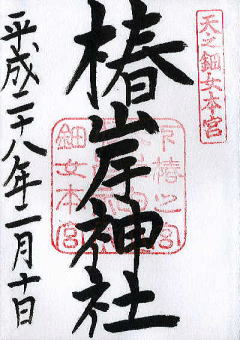 天之鈿女本宮
椿岸神社
平成二十八年二月十日
鈿女本宮